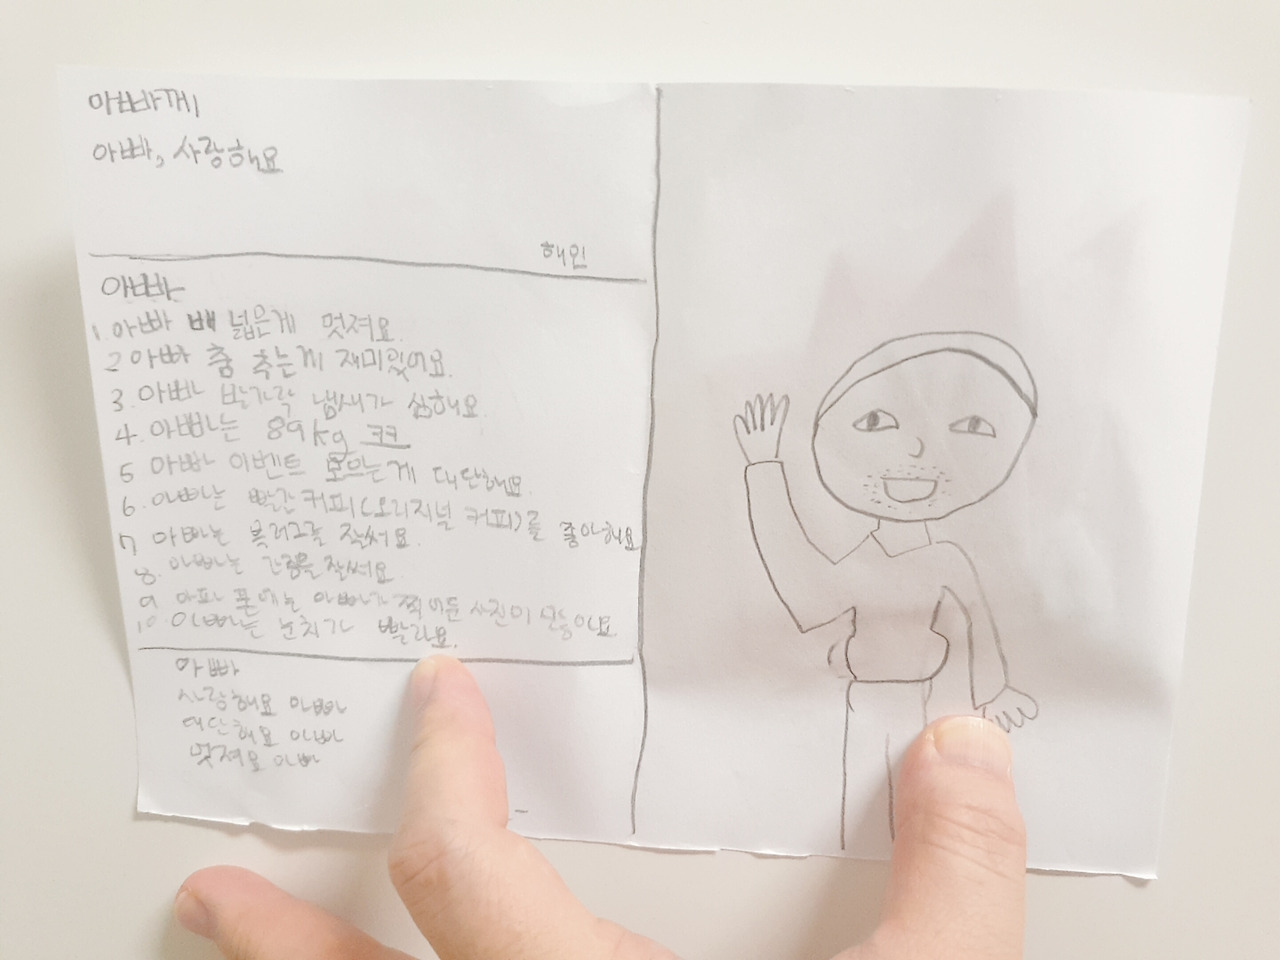 아빠께
아빠, 사랑해요
해인
아빠
1. 아빠 배 넓은게 멋져요.
2 아빠 춤 추는게 재미있어요.
3. 아빠 발가락 냄새가 심해요.
4. 아빠는 89kg ㅋㅋ
5 아빠 이벤트 모으는게 대단해요.
6. 아빠는 빨간 커피(오리지널 커피)를 좋아해요
7 아빠는 블러그를 잘써요.
8. 아빠는 잘써요
9 아빠 폰에는 아빠가 찍어둔 사진이 많아요
10. 아빠는 눈치가 빨라요.
아빠
사랑해요 아빠
대단해요 아빠
멋져요 아빠